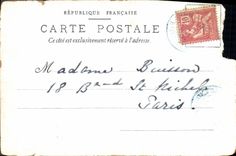 RÉPUBLIQUE FRANÇAISE
CARTE POSTALE
Ce côté est exclusivement réservé à l'adresse.
Madame Buisson
18 Bard St Michel
Paris.